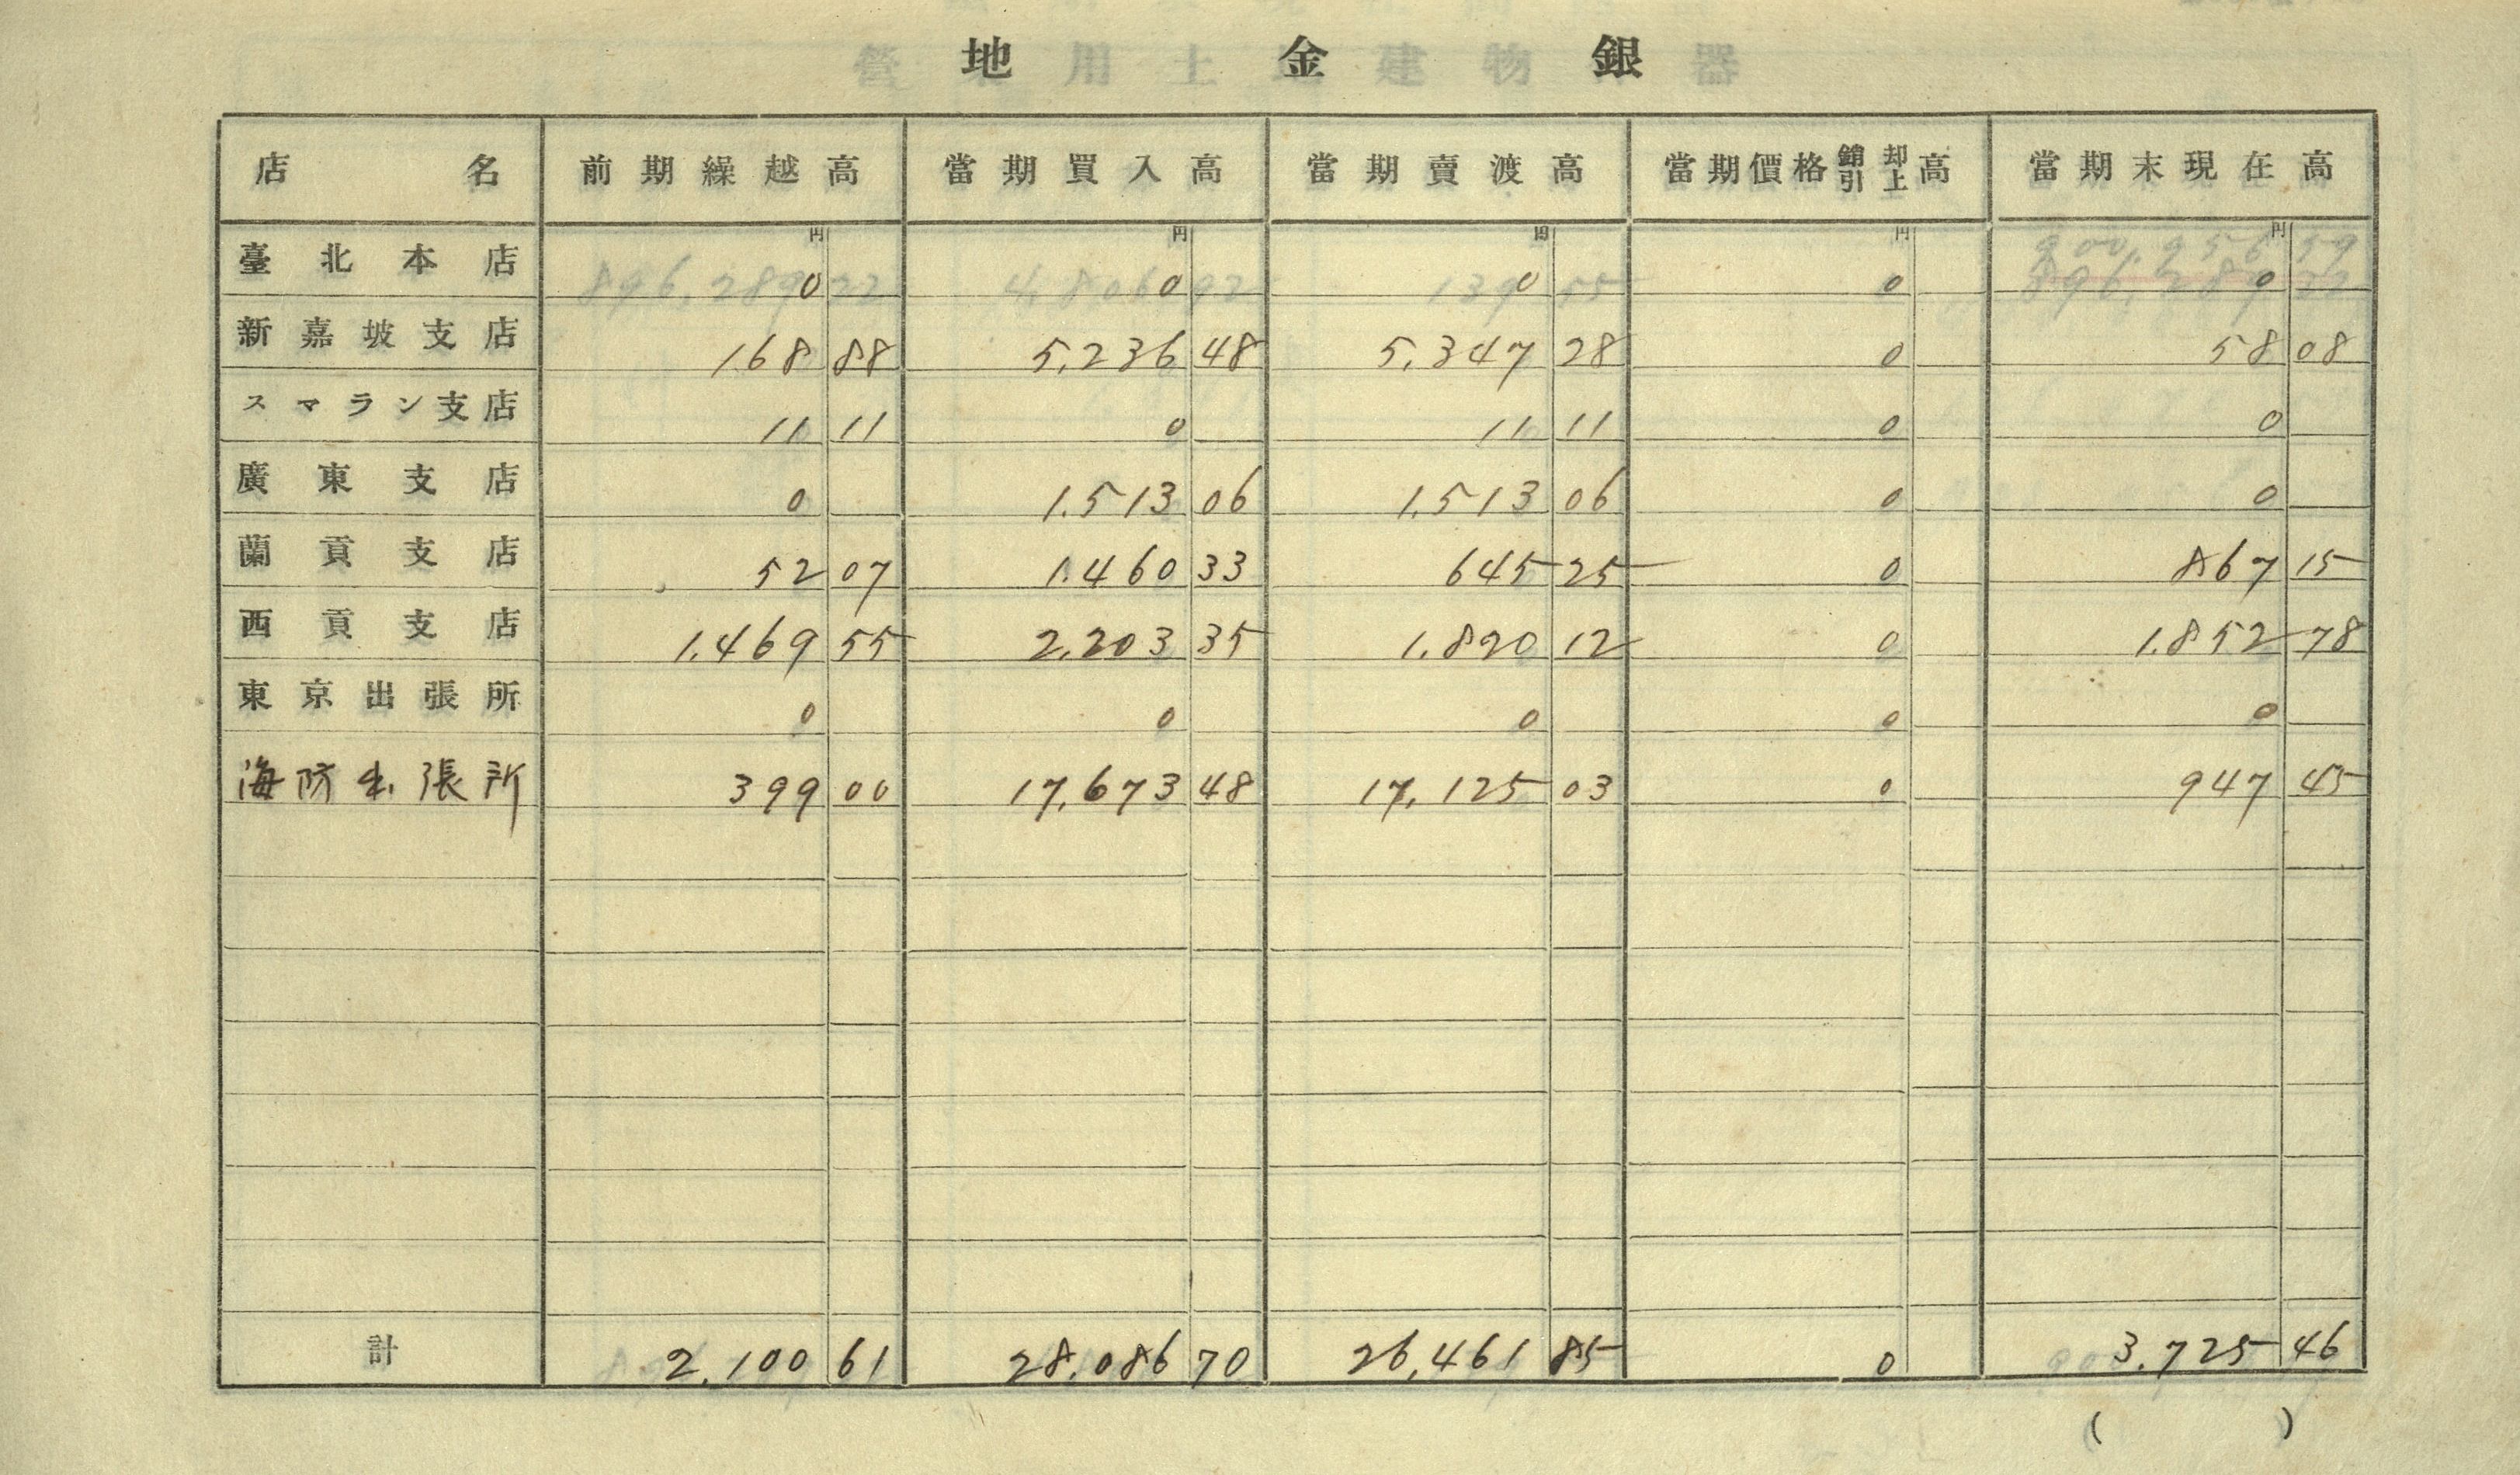 地金銀
店名 前期繰越高 當期買入高 當期賣渡高 當期價格銷却引上高 當期末現在高
円 円 円 円 円
臺北本店 0 0 0 0 0
新嘉坡支店 168 88 5,236 48 5,347 28 0 58 08
スマラン支店 11 11 0 11 11 0 0
廣東支店 0 1.513 06 1.513 06 0 0
蘭貢支店 52 07 1.460 33 645 25 0 867 15
西貢支店 1.469 55 2.203 35 1.820 12 0 1.852 78
東京出張所 0 0 0 0 0
海防出張所 399 00 17,673 48 17,125 03 0 947 45
計 2,100 61 28,086 70 26,461 85 0 3.725 46
( )